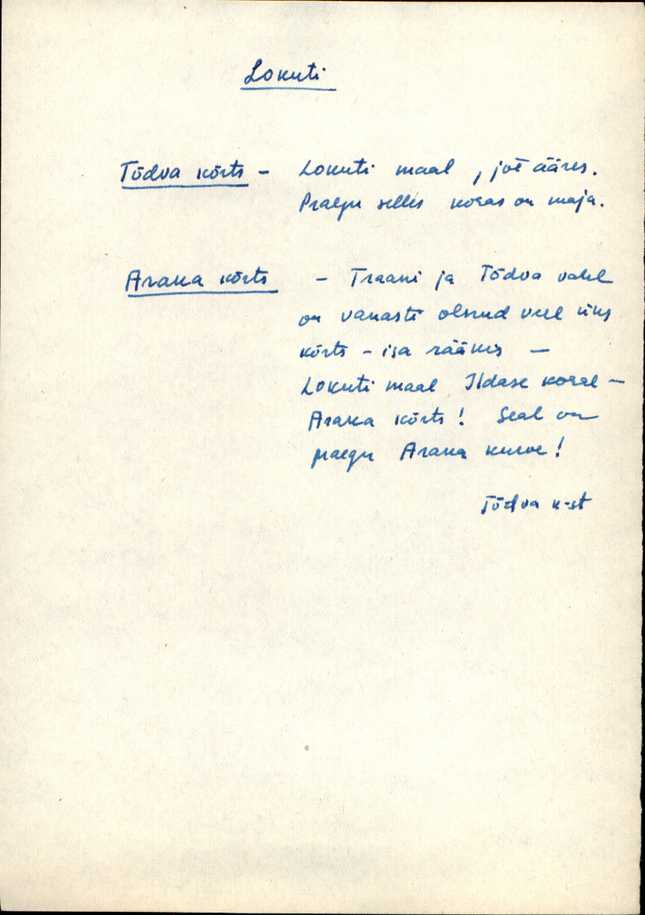 Lokuti
Tõdva kõrts - Lokuti maal, jõe ääres.
Praegu selles kohas on maja.
Araka kõrts - Traani ja Tõdva vahel
on vanasti olnud veel üks
kõrts - isa rääkis -
Lokuti maal Ildase kohal -
Araka kõrts! Seal on
praegu Araka kurve!
Tõdva k-st